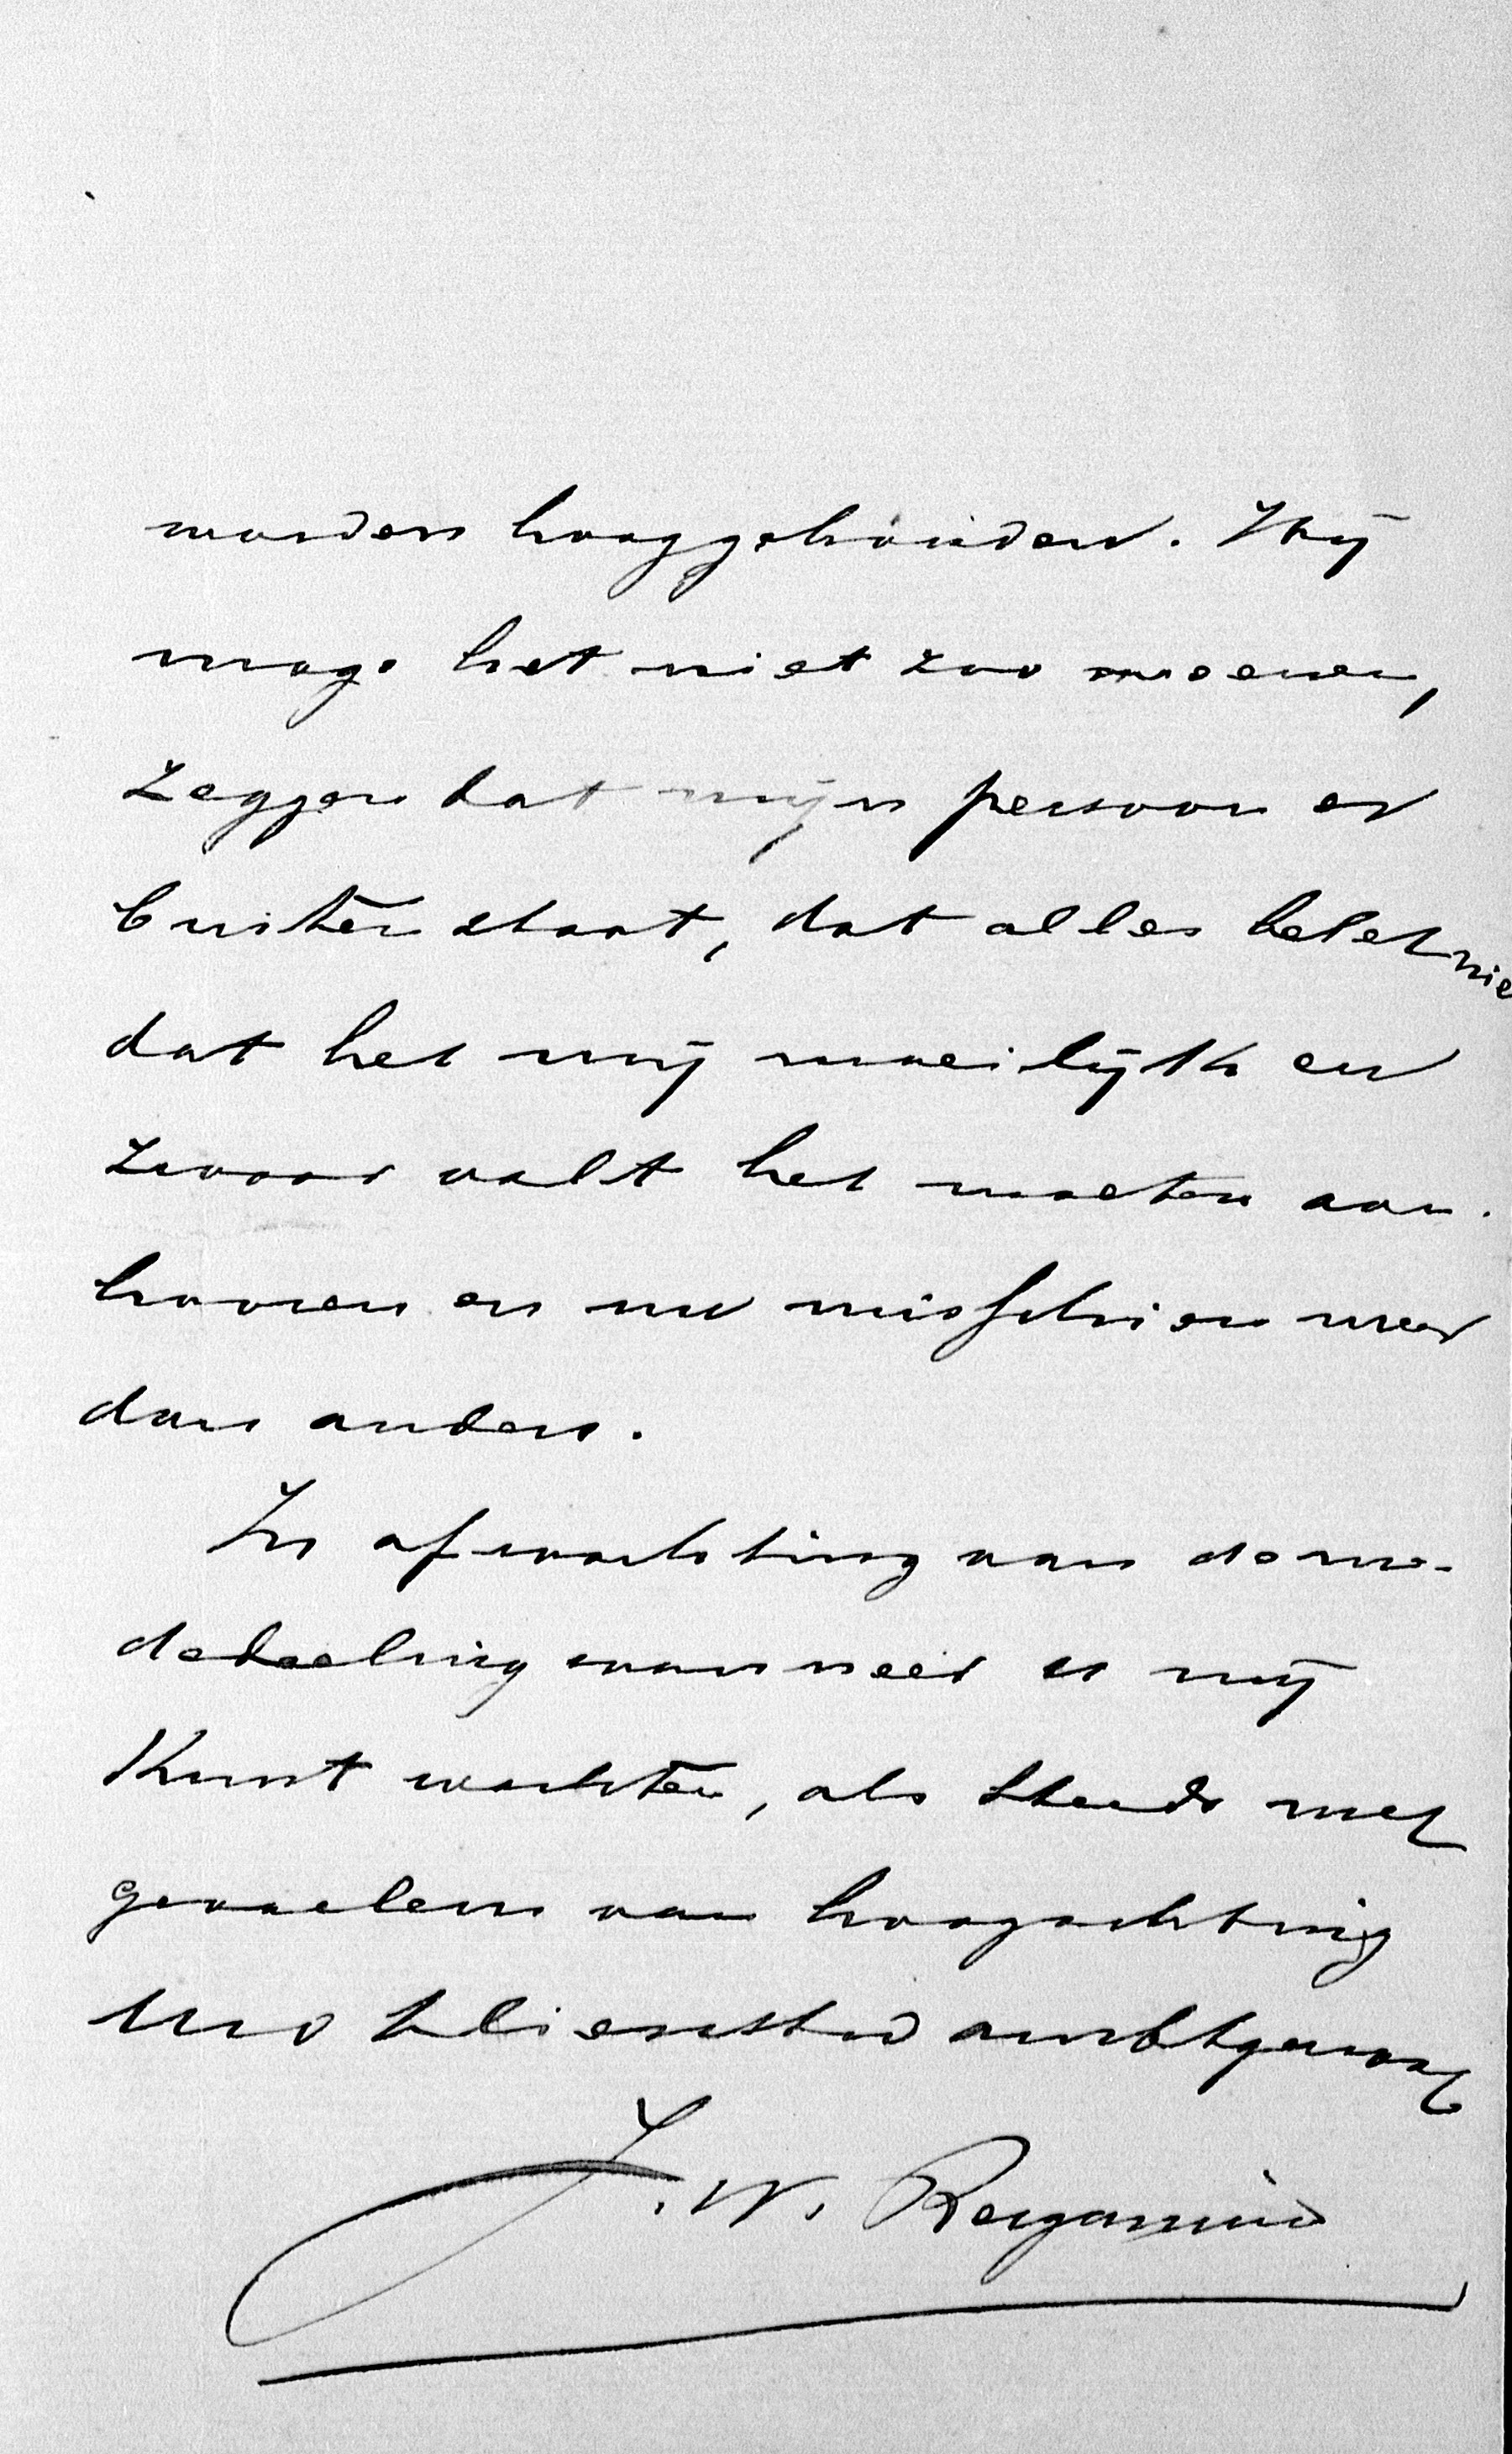 worden hooggehouden. Hij
moge het niet zoo meenen,
zeggen dat mijn persoon er
buiten staat, dat alles belet nie
dat het mij moeilijk en
zwaar valt het moeten aan-
hooren en nu misschien meer
dan anders.
In afwachting van de me-
dedeeling wanneer u mij
kunt wachten, als steeds met
gevoelens van hoogachting
Uw dienstw ambtgenoot
J. W.